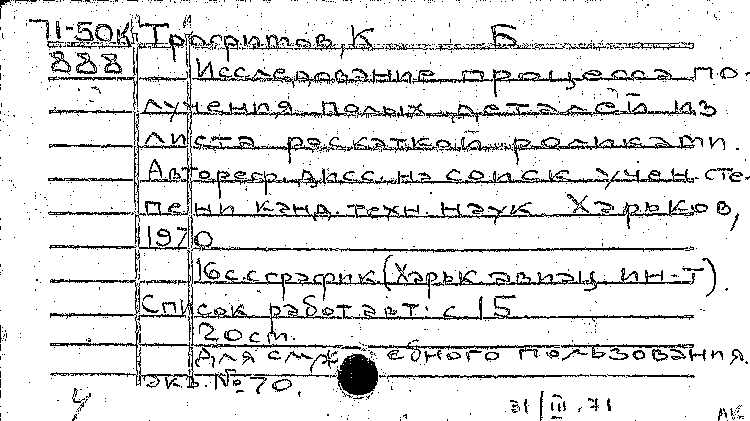 71-50К Трофимов, К Б
888 Исследование процесса по-
лучения полых деталей из
листа раскаткой роликами.
Автореф. дисс. на соиск учен. сте-
пени канд. техн. наук Харьков,
1970
16с. с график (Харьк авиац. ин-т).
Список работ авт: с 15
20см.
Для служебного пользования.
экз. №70.
31/III.71
АК